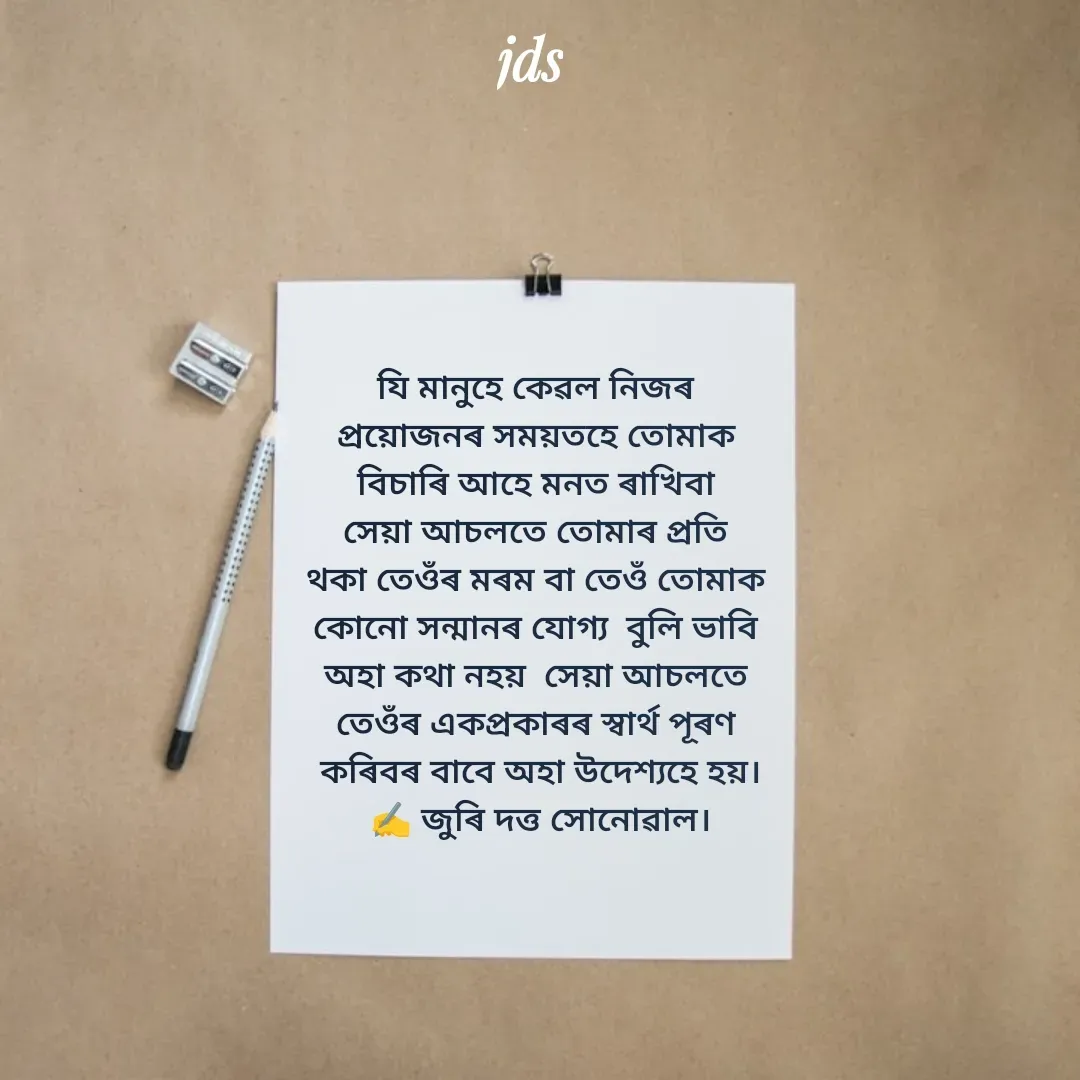 jds
যি মানুহে কেৱল নিজৰ
প্ৰয়োজনৰ সময়তহে তোমাক
বিচাৰি আহে মনত ৰাখিবা
সেয়া আচলতে তোমাৰ প্ৰতি
থকা তেওঁৰ মৰম বা তেওঁ তোমাক
কোনো সন্মানৰ যোগ্য  বুলি ভাবি
অহা কথা নহয়  সেয়া আচলতে
তেওঁৰ একপ্ৰকাৰৰ স্বাৰ্থ পূৰণ
কৰিবৰ বাবে অহা উদেশ্যহে হয়।
✍️ জুৰি দত্ত সোনোৱাল।